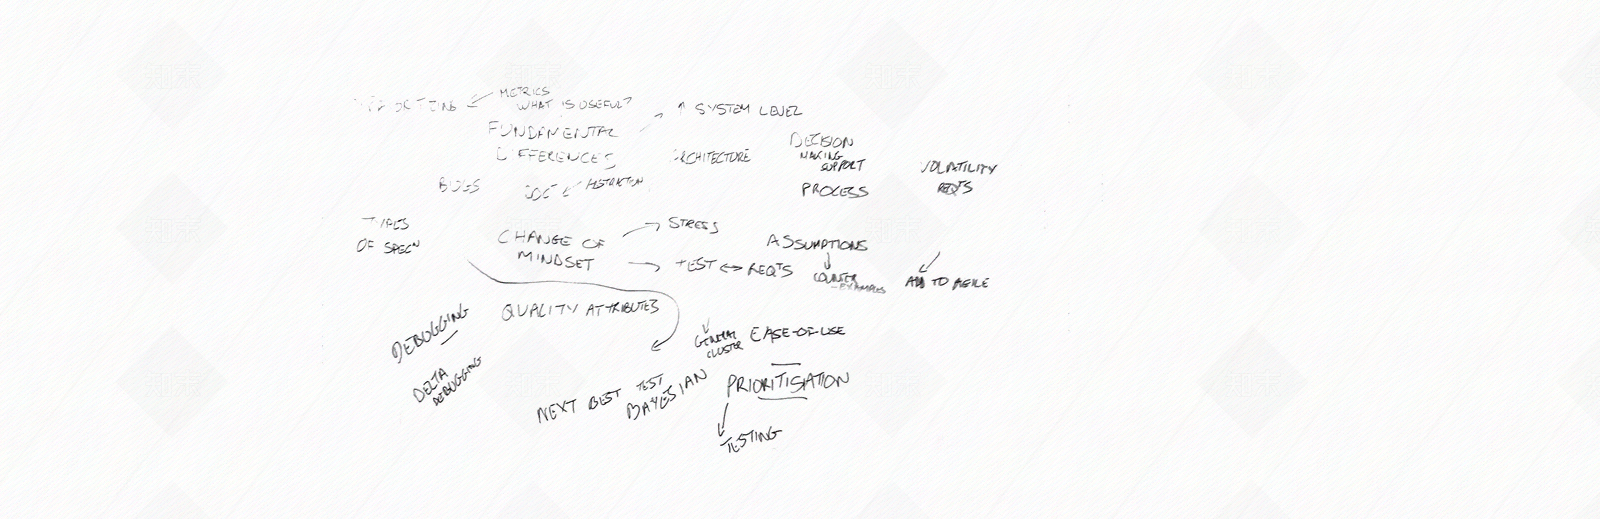 METRICS
WHAT IS USEFUL?
SYSTEM LEVEL
FUNDAMENTAL
DIFFERENCES
ARCHITECTURE
DECISION
MAKING
SUPPORT
PROCESS
VOLATILITY
REQTS
BUGS
ABSTRACTION
TYPES
OF SPECN
CHANGE OF
MINDSET
STRESS
TEST ↔ REQTS
ASSUMPTIONS
COUNTER
-EXAMPLES
ADD TO AGILE
QUALITY ATTRIBUTES
DEBUGGING
DELTA
DEBUGGING
GENERAL
CLUSTER
EASE-OF-USE
NEXT BEST TEST
BAYESIAN
PRIORITISATION
TESTING